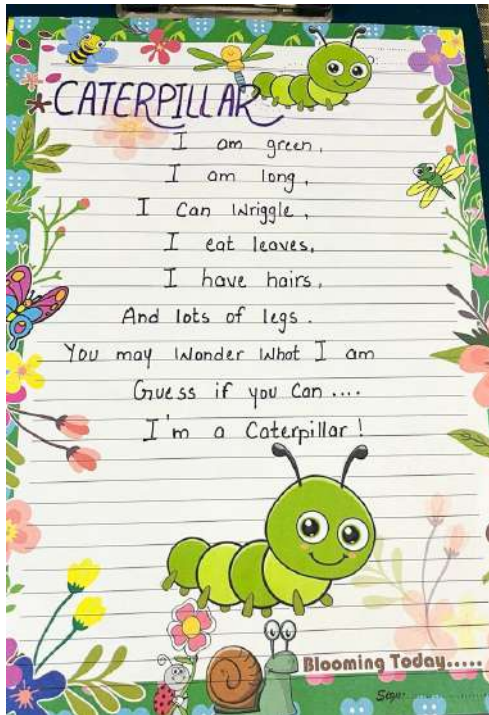 *CATERPILLAR
I am green,
I am long,
I Can Wriggle,
I eat leaves,
I have hairs,
And lots of legs.
You may Wonder What I am
Guess if you Can ....
I'm a Caterpillar!
Blooming Today.....
Sign: